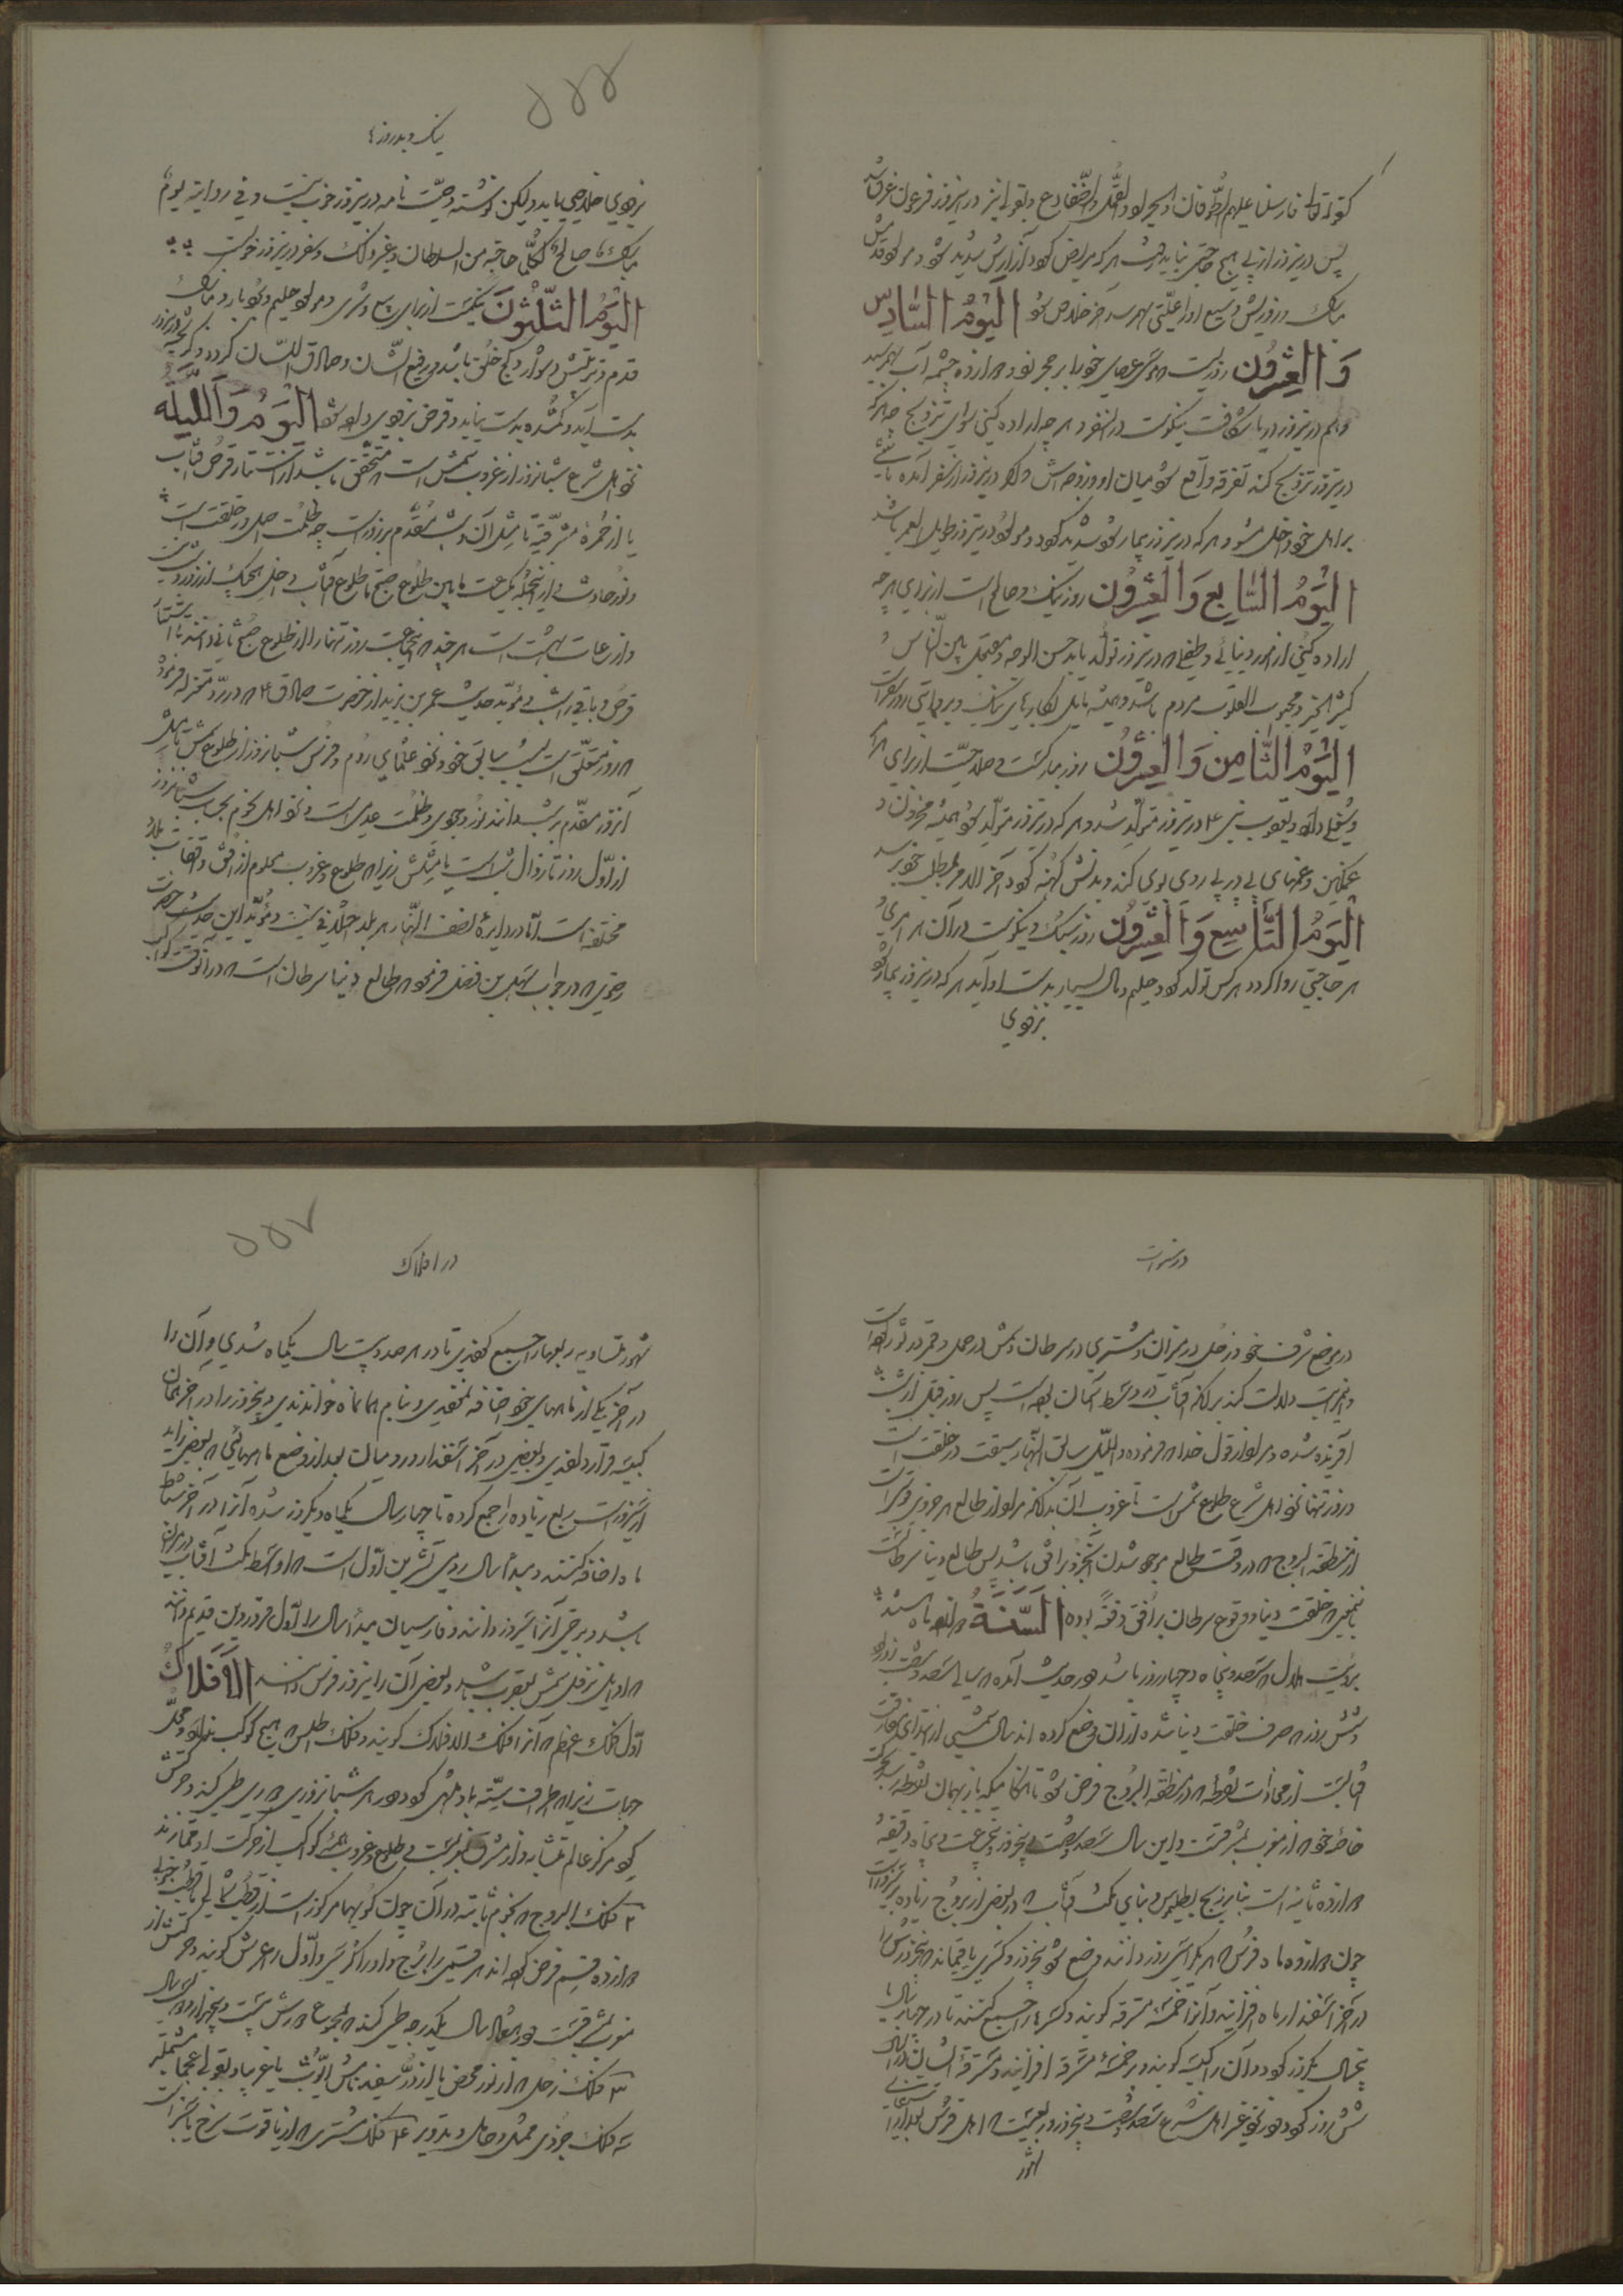 کقوله تعالی فارسلنا علیهم الطوفان والجراد والقمل والضفادع وبقولی نیز درینروز فرعون غرق شد
پس درینروز از پی هیچ حاجتی نباید رفت هر که مریض کردد آزارش شدید شود ومولود مثل
مبارک ورزقش وسیع اما علتی بهم رسد آخر خلاص شود الیوم السادس
والعشرون روزیست که موسی عصای خود را بر حجر زد دوازده چشمه آب بهم رسید
وهم درینروز دریا شکافت نیکوست در آن سفر و هر چه اراده کنی سوای تزویج چه هر که
درینروز تزویج کند تفرقه واقع شود میان او و زوجه‌اش واکر درینروز از سفر آمده باشی
بر اهل خود داخل مشو و هر که درینروز بیمار شود شدید کردد ومولود درینروز طویل العمر باشد
الیوم السابع والعشرون روز نیک وصالح است از برای هر چه
اراده کنی از امور دنیائی وطفلی که درینروز تولد یابد حسن الوجه ومعتمد بین الناس و
کثیر الخیر ومحبوب القلوب مردم باشد وهمیشه مایل بکارهای نیک
الیوم الثامن والعشرون روز مبارکست وصلاحیت از برای هر
ویعقوب نبی ع درینروز متولد شد و هر که درینروز متولد شود همیشه محزون و
غمکین وغمهای پی در پی روی بوی کند وبدنش کهنه کردد آخر الامر بمطلب خود رسد
الیوم التاسع والعشرون روز سبک ونیکوست در آن هر امری و
هر حاجتی روا کردد هر کس تولد کردد حلیم ومال بسیار بدست او آید هر که درینروز بیمار شود
بزودی
۵۵۶
نیک وبد روزها
بزودی خلاصی یابد ولیکن نوشتن وصیت نامه درینروز خوب نیست وفی روایة یوم
مبارک صالح لکل حاجة من السلطان وغیره ذلک وسفر درینروز خوبست
الیوم الثلثون نیکست از برای بیع وشری ومولود حلیم ونیکو بار و مبارک
قدم وتربیتش دشوار وکج خلق باشد ورفیع الشان وصادق اللسان کردد وکریخته درینروز
بدست آید وکمشده بدست بیاید وقرض بزودی ادا شود الیوم واللیله
نزد اهل شرع شبانروز از غروب شمس است که متحقق باشد از استتار قرص آفتاب
یا از حمرهٔ مشرقیه تا مثل آن وشب مقدم بر روز است چه ظلمت اصل در خلقت است
ونور حادث واز اینجهة یک ساعت مابین طلوع صبح تا طلوع آفتاب داخل هیچیک از روز وشب نیست
واز ساعات بهشت است هر چند که جماعت روز تنها را از طلوع صبح ثانی دانند تا استتار
قرص وباقی را شب ومؤید حدیث عمر بن یزید از حضرت صادق ع که در رد مغیریه فرمود
که روز متعلق است بشب سابق خود ونزد علمای روم وفرس شبانروز از طلوع شمس تا مثل
آنروز مقدم بر شب دانند نور وجودی وظلمت عدمی است ونزد اهل نجوم بحساب شبانروز
از اول روز تا زوال شب است یا مثلش زیرا که طلوع وغروب معلوم از افق وآفاق بلاد
مختلف است اما در دایرهٔ نصف النهار هر بلد اختلاف نیست ومؤید این حدیث حضرت
رضوی که در جواب سهل بن فضل فرمود که طالع دنیا سرطان است که در آنوقت کواکب
در سنوات
در موضع شرف خود زحل در میزان ومشتری در سرطان وشمس در حمل وقمر در ثور بوده است
واین است دلالت کند بر آنکه آفتاب در وسط آسمان بوده است پس روز قبل از شب
آفریده شده ومراد از قول خدا که فرموده ولااللیل سابق النهار سبقت در خلقت است
وروز تنها نزد اهل شرع طلوع شمس است تا غروب آن بدانکه مراد از طالع هر جزوی جزئیست
از منطقة البروج که در وقت طالع موجود شدن آن جزو بر افق باشد پس طالع دنیا سرطانست
بمعنی که خلقت دنیا در وقوع سرطان بر افق وقت بوده السنة دوازده ماه باشند
برؤیت هلال سیصد وپنجاه وچهار روز باشد ودر حدیث آمده که سال سیصد وشصت روز بود
وشش روز که صرف خلقت دنیا شده از آن وضع کرده‌اند سال شمسی از ابتدای مفارقت
آفتابست از محاذات نقطه که در منطقة البروج فرض شود تا هنکامیکه باز بهمان نقطه رسد بحرکت
خاصهٔ خود که از مغرب بمشرقست واین سال سیصد وشصت وپنجروز وپنج ساعت وپنجاه دقیقه و
دوازده ثانیه است بنا بر زیج بطلمیوس وبنای مکث آفتاب که در بعضی از بروج زیاده بر سی روز است
چون دوازده ماه فرس که هر یک را سی روز دانند وضع شود پنجروز وکسری باقیماند که پنجروز را
در آخر اسفندارماه افزایند وآنرا خمسهٔ مسترقه کویند وکسرها را جمع کنند تا در چهار سال یا
پنجسال یکروز کردد وآن را کبیسه کویند ودر خمسهٔ مسترقه افزایند ومسترقهٔ ایشان در آن سال
شش روز کردد ودر نزد غیر اهل شرع سیصد وشصت وپنجروز وربعیست که اهل فرس بعد از
شهور
۵۵۷
در افلاک
شهور متساویه ربعها را جمع کنندی تا در هر صد وبیست سال یکماه شدی وآن را
در آخر یکی از ماههای خود اضافه نمودندی وبنام همان ماه خواندندی وپنجروز را در آخر همان
کبیسه قرار دادندی وبعضی در آخر اسفندار ورومیان بعد از وضع ماههائی که بعضی زاید
از سی روز است ربع زیاده را جمع کرده تا چهار سال یکماه ویکروز شده آنرا در آخر شباط
ماه اضافه کنند ومبدأ سال رومی تشرین اول است که اواسط مکث آفتاب در میزان
باشد وبرخی آنرا سی روز دانند وفارسیان مبدأ سال را اول فروردین قدیم دانند
که اوایل نزول شمس بعقرب باشد وبعضی آن را نیروز فرس دانند الافلاک
اول فلک اعظم که آنرا فلک الافلاک کویند وفلک اطلس که هیچ کوکب ندارد ومحدد
جهات زیرا که اطراف سته باو منتهی کردد ودر هر شبانروزی دوری طی کند وحرکتش
کرد مرکز عالم متشابه واز مشرق بمغربست وطلوع وغروب همهٔ کواکب از حرکت او وقمازند
۲ فلک البروج که نجوم ثابته در آن چون کوئیها مرکوز است از قطب شمالی تا قطب جنوبی
دوازده قسم فرض کرده‌اند هر قسمی را برج واو را کرسی واول را عرش کویند وحرکتش از
مغرب بمشرقست ودر هفتاد سال یکدرجه طی کند که مجموعا در بیست وپنجهزار ودویست سال
۳ فلک زحل که از نور محض یا از در سفید نامش الریث یا غریبا وبقولی عجما مشتملبر
سه فلک جزوی ممثل وحامل وتدویر ۴ فلک مشتری که از یاقوت سرخ یا سبز است